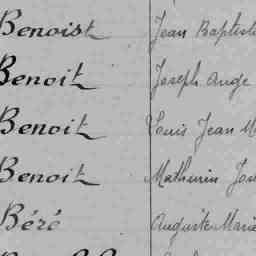 Benoist Jean Baptiste
Benoit Joseph Ange
Benoit Louis Jean M
Benoit Mathurin Jos
Béré Auguste Marie